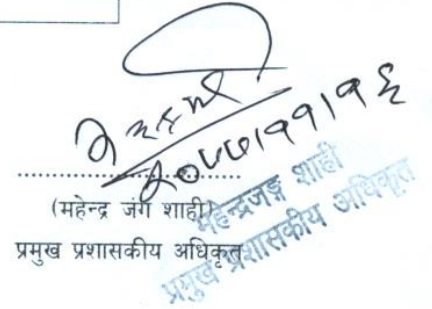 २०७७।११।१६
(महेन्द्र जंग शाही)
प्रमुख प्रशासकीय अधिकृत
महेन्द्रजङ्ग शाही
प्रमुख प्रशासकीय अधिकृत